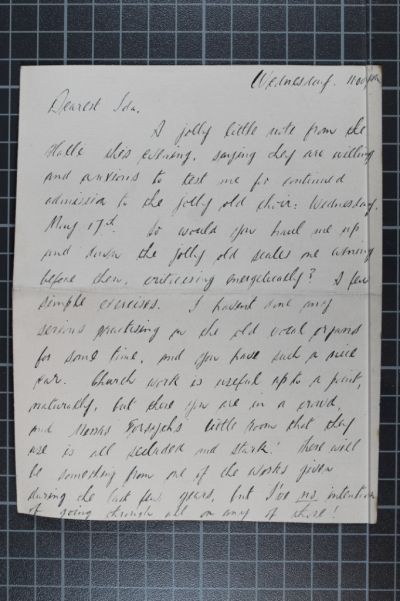 Wednesday. 11.00 pm
Dearest Ida,
A jolly little note from the
Halle this evening, saying they are willing
and anxious to test me for continued
admission to the jolly old choir: Wednesday,
May 17th. So would you haul me up
and down the jolly old scales one evening
before then, criticising energetically? A few
simple exercises. I haven't done any
serious practising on the old vocal organs
for some time, and you have such a nice
ear. Church work is useful up to a point,
naturally, but there you are in a crowd,
and Messrs Forsyths little room that they
use is all secluded and stark! There will
be something from one of the works given
during the last few years, but I've no intention
of going through all or any of those!